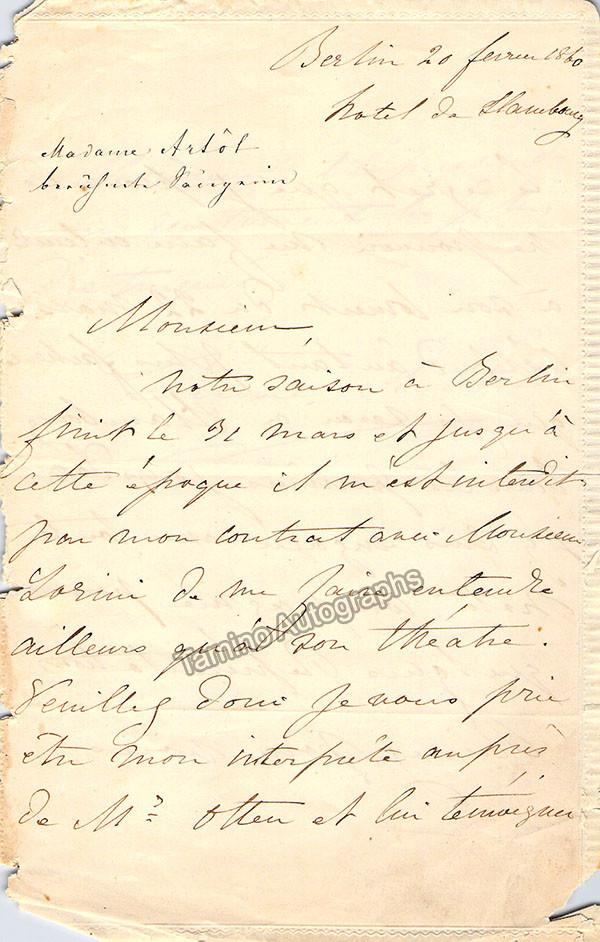 Berlin 20 fevrier 1860
hotel de Hambourg
Madame Artôt
berühmte Sängerin
Monsieur,
notre saison à Berlin
finit le 31 mars et jusqu'à
cette époque il m'est interdit
par mon contrat avec Monsieur
Lorini de me faire entendre
ailleurs qu'à son théatre.
Veuillez donc je vous prie
être mon interprète auprès
de Mr Otten et lui temoigner
Tamino Autographs